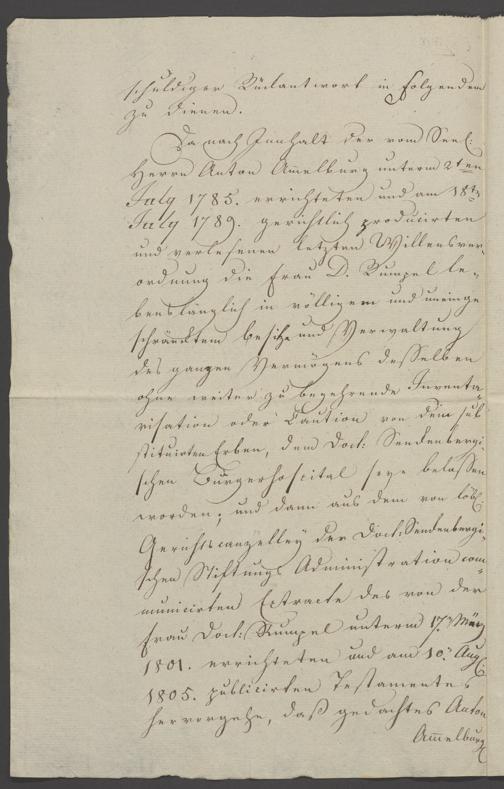 schuldiger Rückantwort in Folgendem
zu dienen.
Da nach Innhalt der vom Seel:
Herrn Anton Am̄elburg unterm 2ten
July 1785. errichteten und am 18ten
July 1789. gerichtlich producirten
und verlesenen letzten Willensver-
ordnung die Frau D. Rumpel le-
benslänglich in völligem und uneinge
schräncktem Besitze und Verwaltung
des ganzen Vermögens desselben
ohne weiter zu begehrende Inventa-
risation oder Caution von dem sub
stituirten Erben, dem Doct: Senckenbergi-
schen Bürgerhospital seye belassen
worden; und dann aus dem von löbl:
Gerichtscanzelley der Doct: Senckenbergi-
schen Stiftungs Administration com-
municirten Extracte des von der
Frau Doct: Rumpel unterm 17n März
1801. errichteten und am 10. Aug:
1805. publicirten Testamentes
hervorgehe, daß gedachtes Anton
Am̄elburg